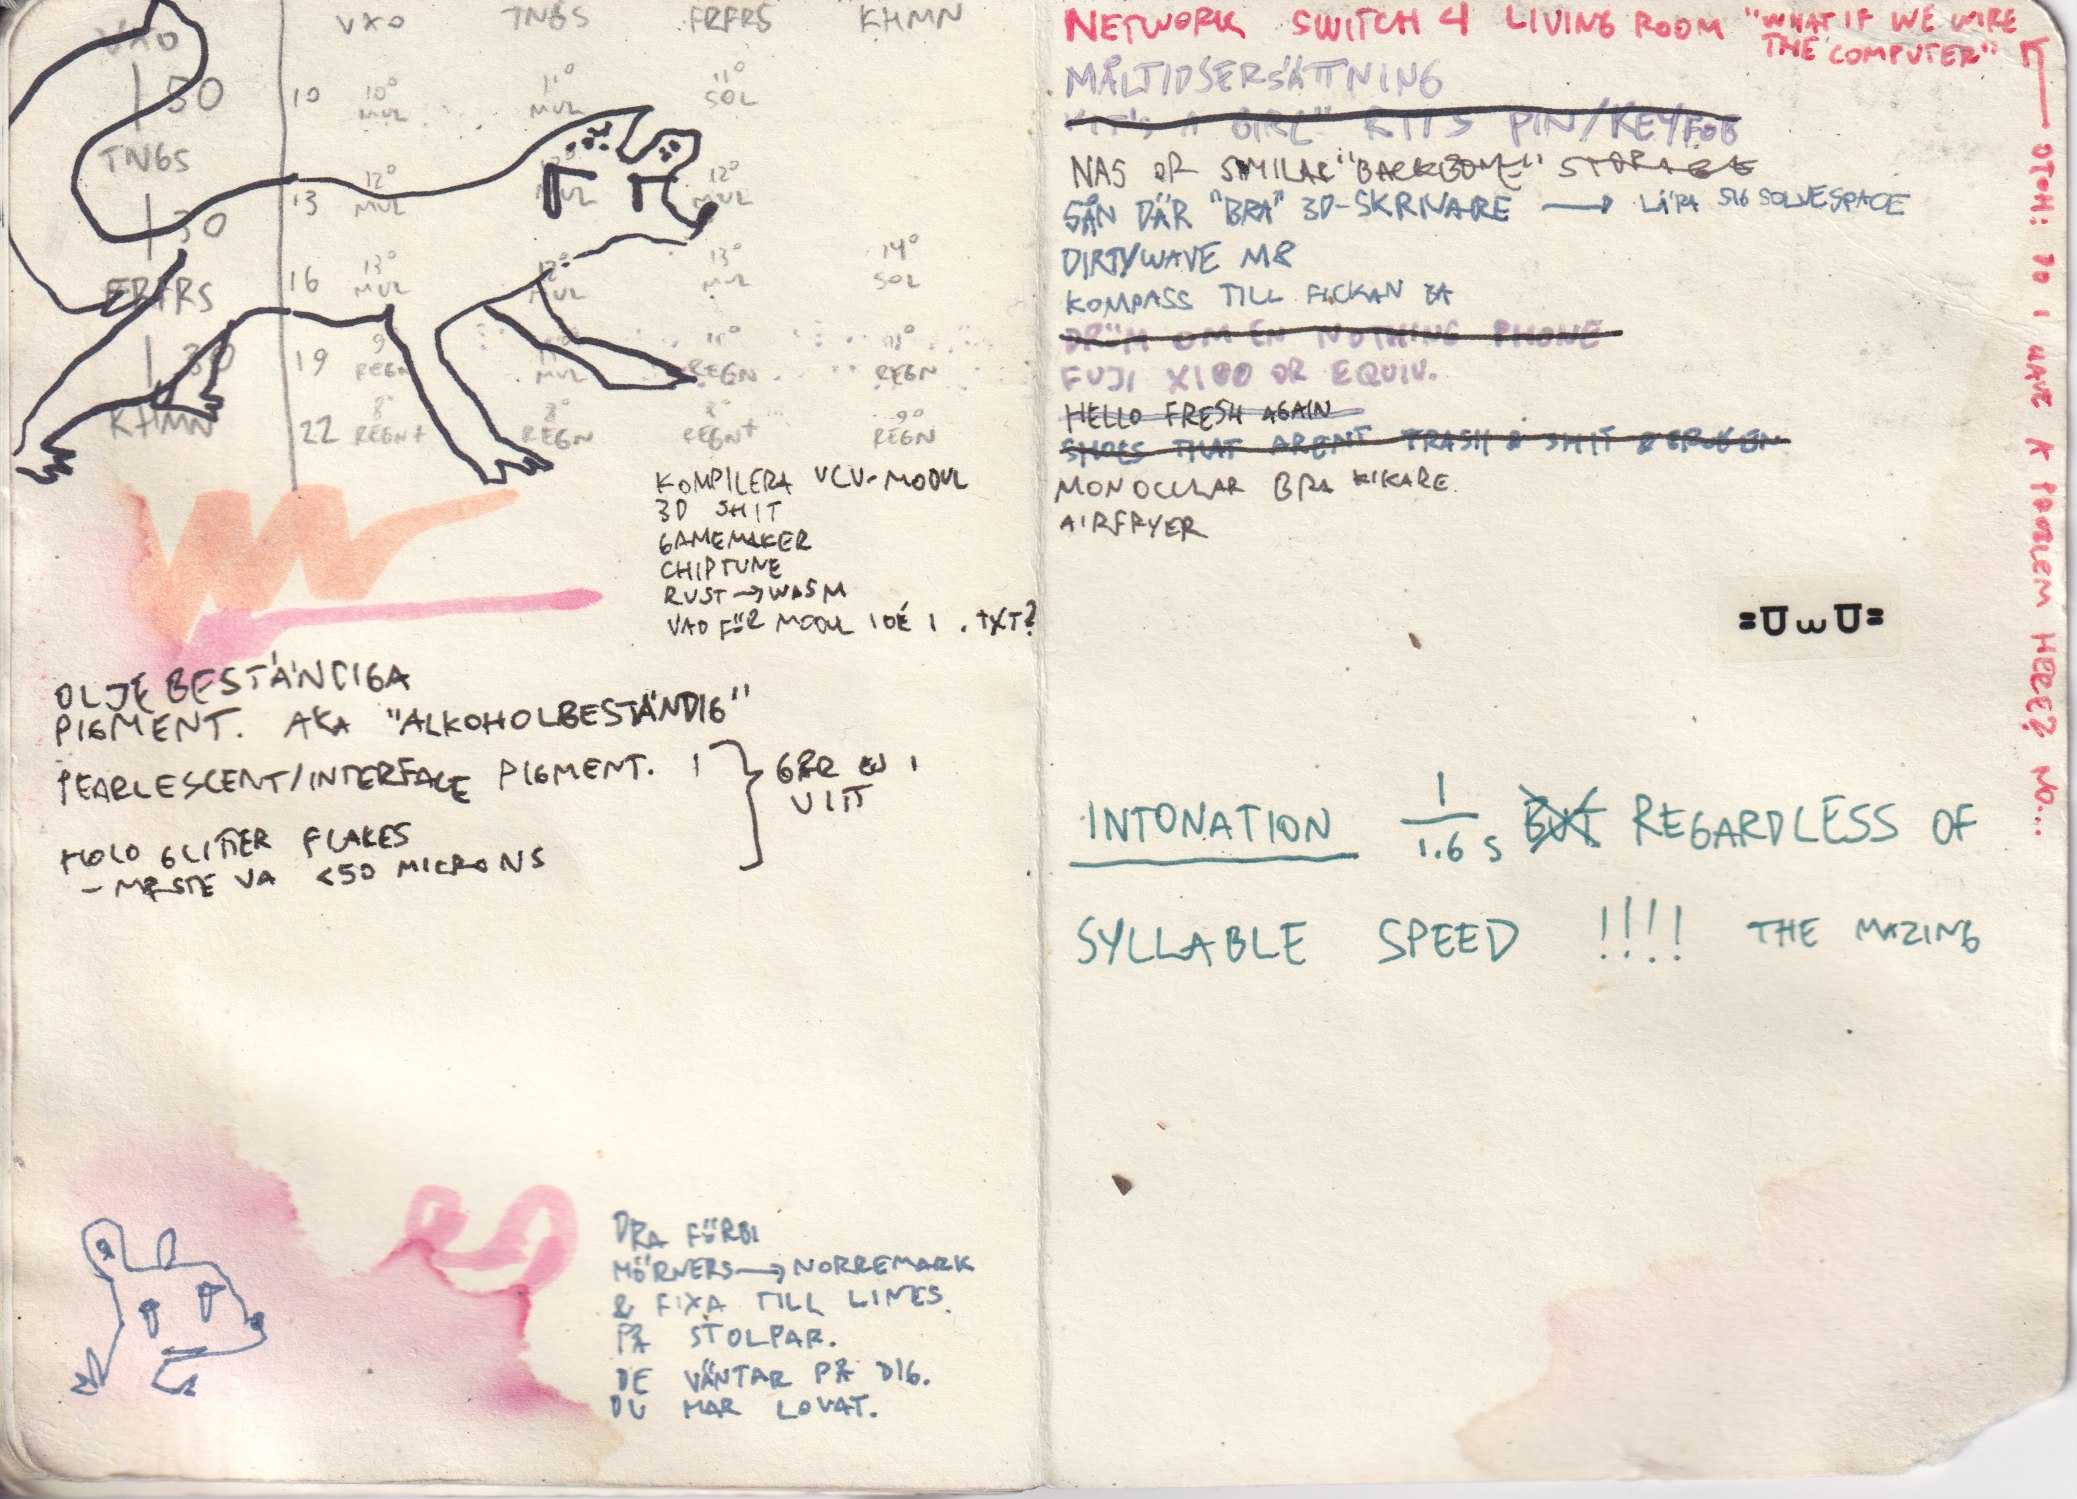 VXO TNGS FRFRS KHMN
VXO
50
10 10° MUL 11° MUL 11° SOL
TNGS
13 12° MUL 12° MUL 12° MUL
30
FRFRS
16 13° MUL 12° MUL 13° MUL 14° SOL
30
19 9° REGN 11° MUL 11° REGN REGN
KHMN
22 8° REGN+ 8° REGN 8° REGN+ 9° REGN
KOMPILERA VCV-MODUL
3D SHIT
GAMEMAKER
CHIPTUNE
RUST → WASM
VAD FÖR MODUL IDÉ I .TXT?
OLJEBESTÄNDIGA
PIGMENT. AKA "ALKOHOLBESTÄNDIG"
PEARLESCENT/INTERFACE PIGMENT.
HOLO GLITTER FLAKES
- MÅSTE VA <50 MICRONS
VITT
DRA FÖRBI
MÖRNERS → NORREMARK
& FIXA TILL LINES
PÅ STOLPAR.
DE VÄNTAR PÅ DIG.
DU HAR LOVAT.
NETWORK SWITCH 4 LIVING ROOM "WHAT IF WE WIRE
THE COMPUTER"
MÅLTIDSERSÄTTNING
"IT'S A GIRL" KITS PIN/KEYFOB
NAS OR SIMILAR "BACKBONE" STORAGE
SÅN DÄR "BRA" 3D-SKRIVARE → LÄRA SIG SOLVESPACE
DIRTYWAVE M8
KOMPASS TILL FICKAN
DRÖM OM EN NOTHING PHONE
FUJI X100 OR EQUIV.
HELLO FRESH AGAIN
SHOES THAT ARENT TRASH & SHIT & BROKEN
MONOCULAR BRA KIKARE
AIRFRYER
OTOH: DO I HAVE A PROBLEM HERE? NO...
=UωU=
INTONATION 1/1.6 s BUT REGARDLESS OF
SYLLABLE SPEED !!!! THE MAZING